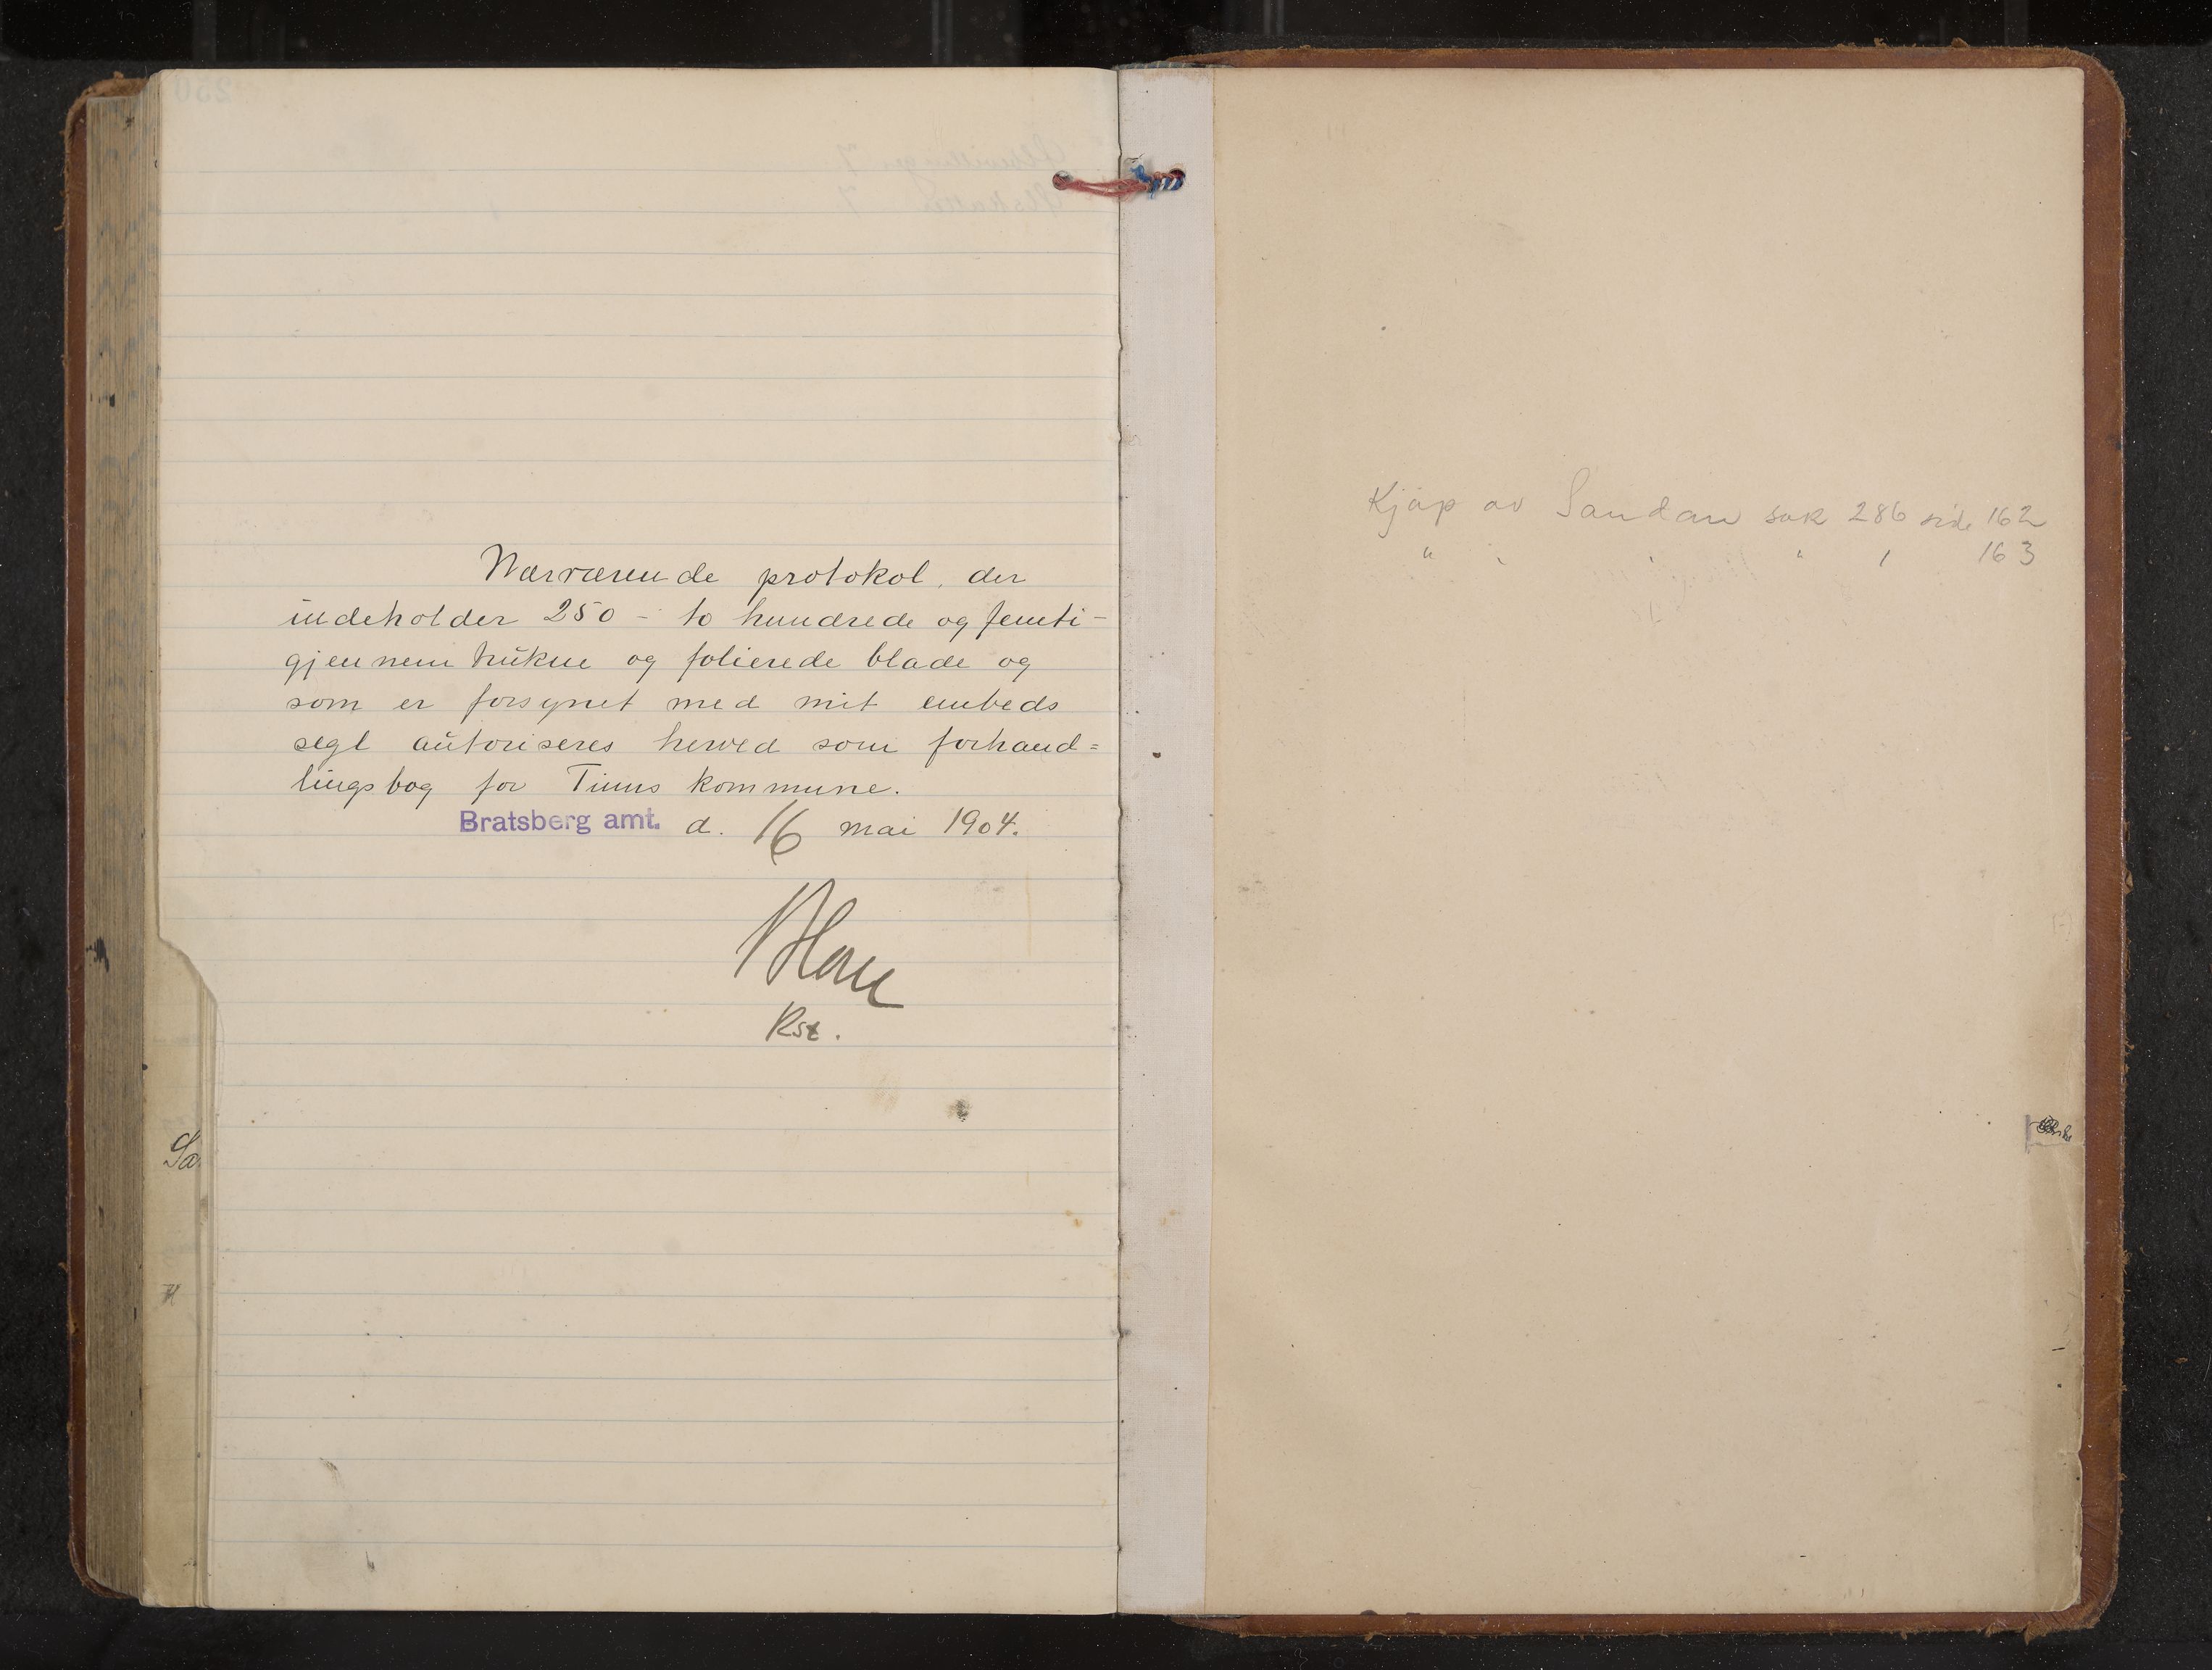 Nærværende protokol, der
indeholder 250 - to hundrede og femti -
gjennemtrukne og folierede blade og
som er forsynet med mit embeds
segl autoriseres herved som forhand=
lingsbog for Tinns kommune.
Bratsberg amt. d. 16 mai 1904.
Kst.
Sa
Kjøp av Sandan sak 286 side 162
" " " " " 163